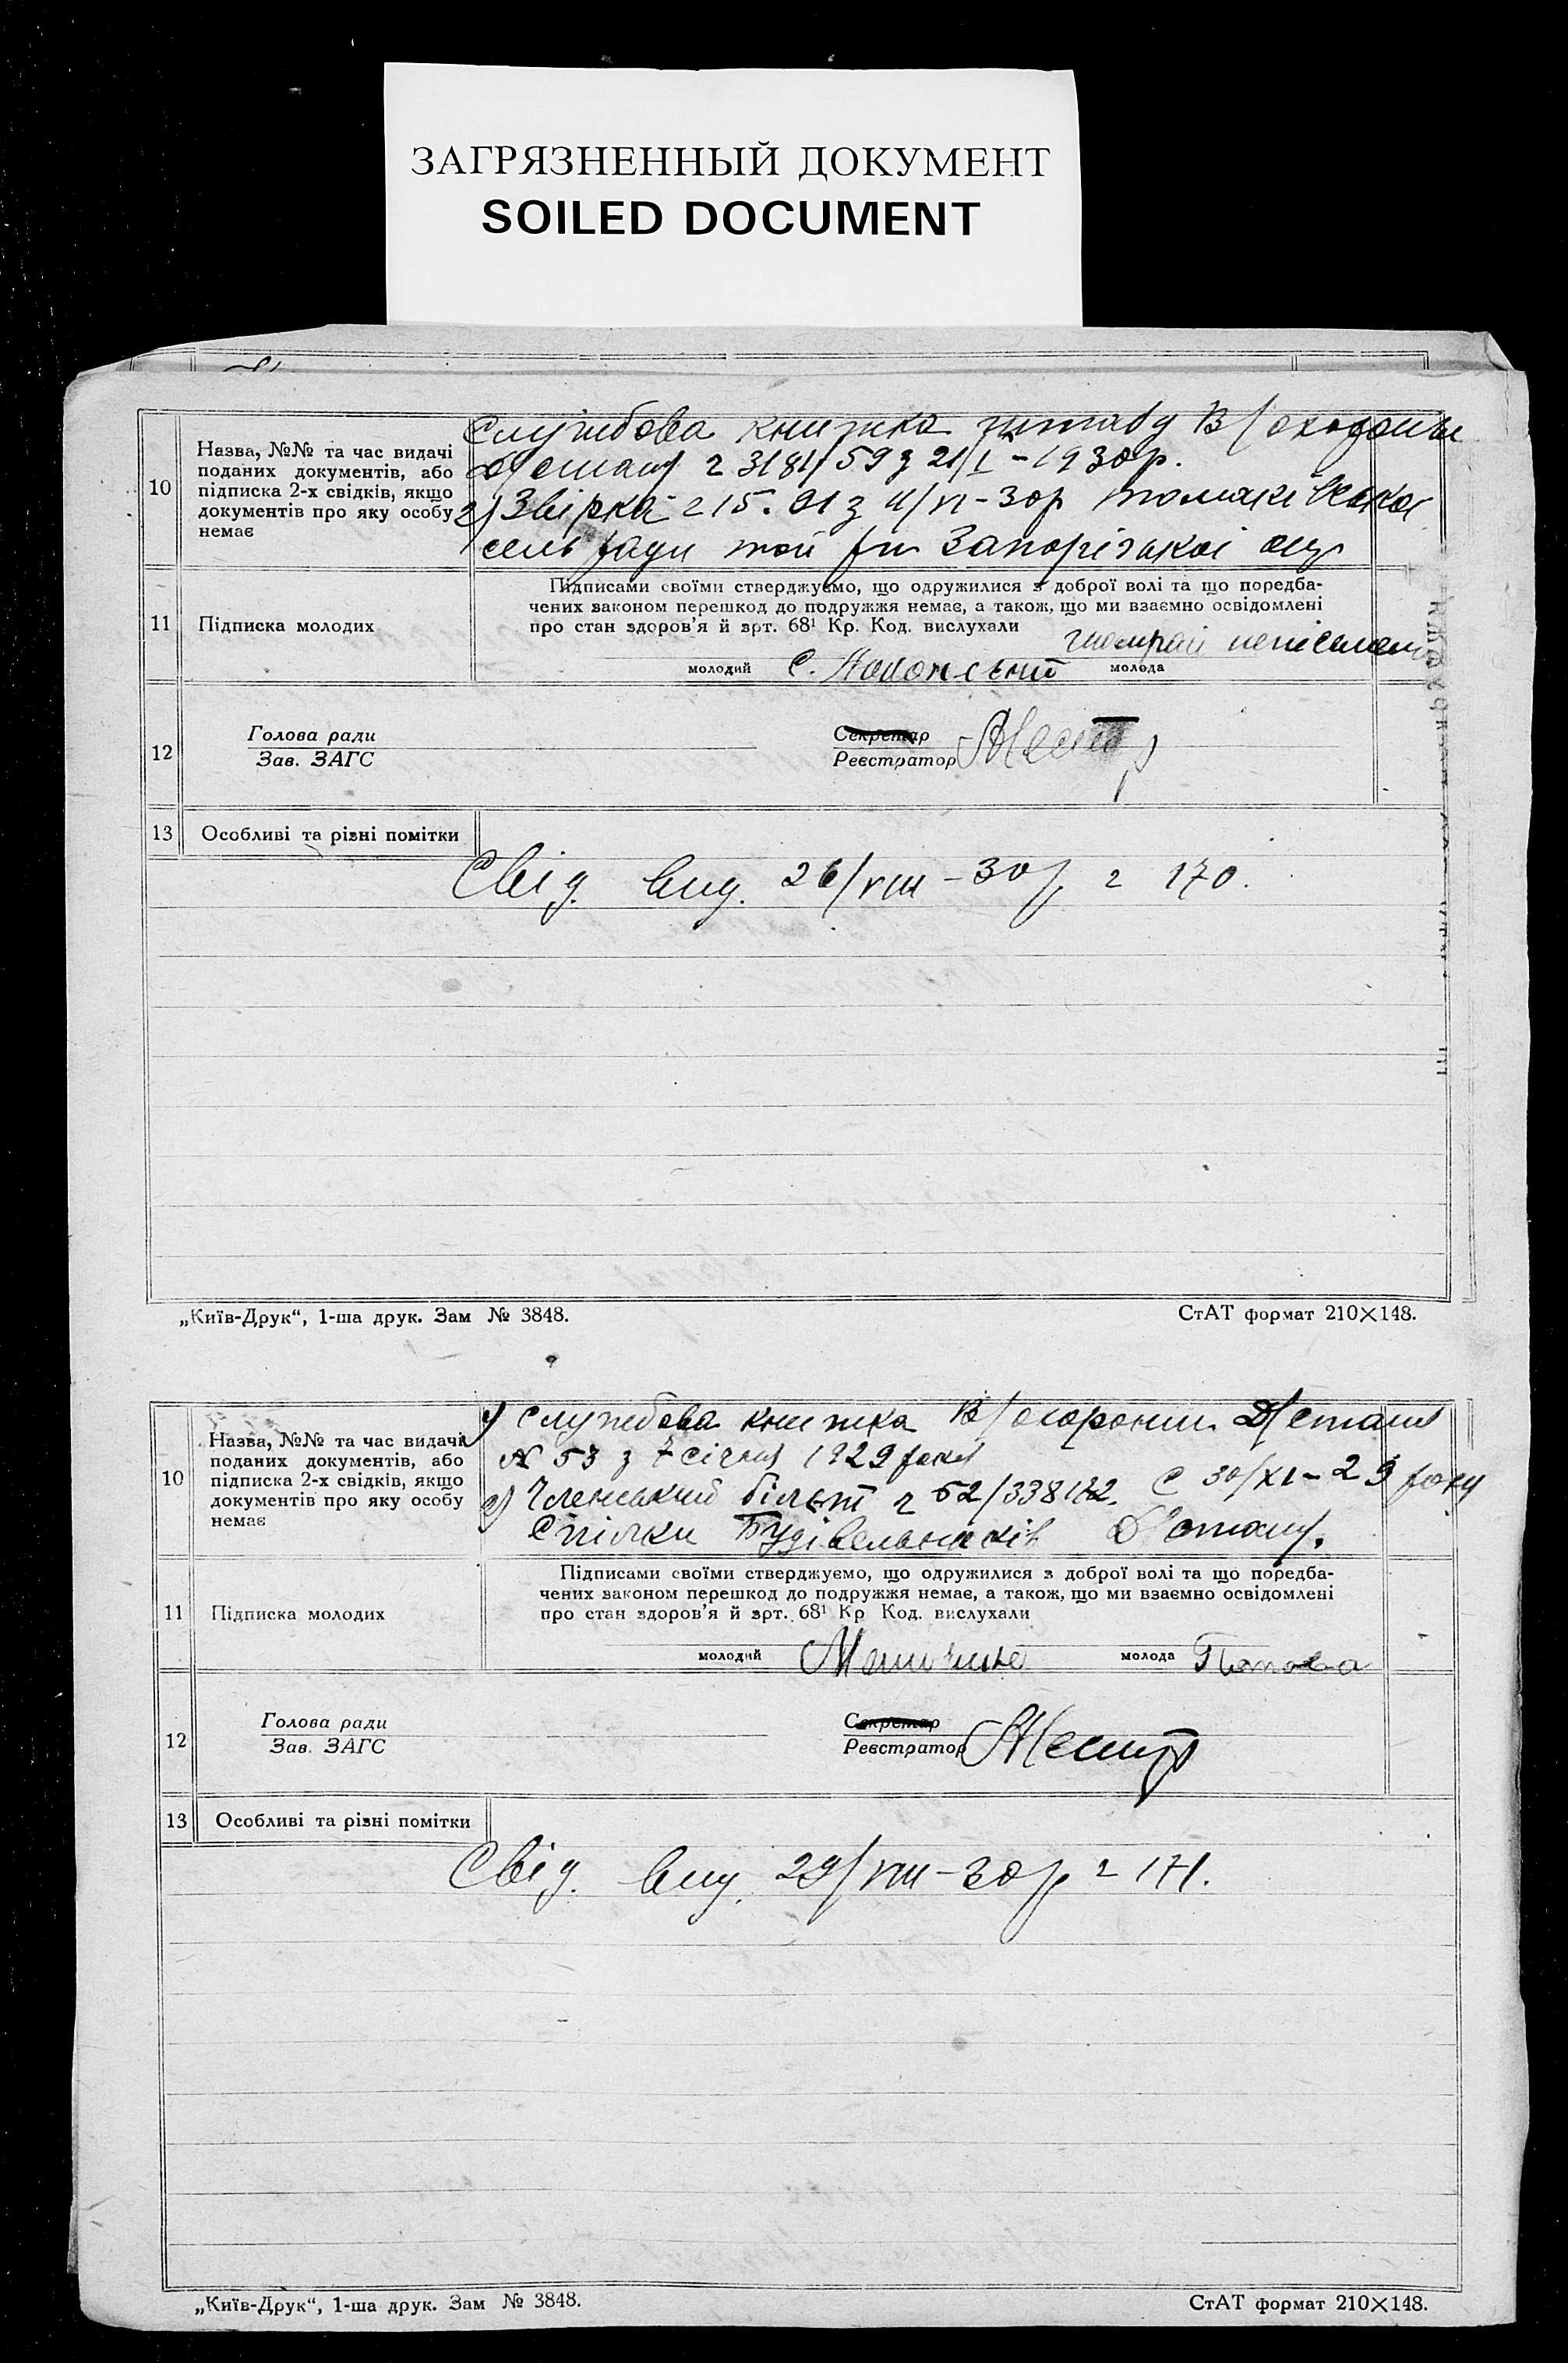 ЗАГРЯЗНЕННЫЙ ДОКУМЕНТ
SOILED DOCUMENT
10
Назва, №№ та час видачі
поданих документів, або
підписка 2-х свідків, якщо
документів про яку особу
немає
Службова книжка штабу В/охорони
3181/59 з 21/I-1930р.
2) 15. 91 з
сель ради Запорізької
11
Підписка молодих
Підписами своїми стверджуємо, що одружилися з доброї волі та що поредба-
чених законом перешкод до подружжя немає, а також, що ми взаємно освідомлені
про стан здоров’я й врт. 68¹ Кр. Код. вислухали
молодий С. молода
12
Голова ради
Зав. ЗАГС
Секретар
Реєстратор
13
Особливі та різні помітки
Свід. вид. 26/VIII-30р. 170.
„Київ-Друк“, 1-ша друк. Зам № 3848.
СтАТ формат 210×148.
10
Назва, №№ та час видачі
поданих документів, або
підписка 2-х свідків, якщо
документів про яку особу
немає
1) Службова книжка В/охорони
N 53 з 7 січня 1929 року
2) Членський білет 52/338112. С 30/XI-29 року
Спілки Будівельників
11
Підписка молодих
Підписами своїми стверджуємо, що одружилися з доброї волі та що поредба-
чених законом перешкод до подружжя немає, а також, що ми взаємно освідомлені
про стан здоров’я й врт. 68¹ Кр Код. вислухали
молодий молода Попова
12
Голова ради
Зав. ЗАГС
Секретар
Реєстратор
13
Особливі та різні помітки
Свід. вид. 29/VIII-30р 171.
„Київ-Друк“, 1-ша друк. Зам № 3848.
СтАТ формат 210×148.